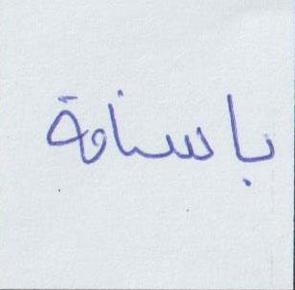 باسنامة